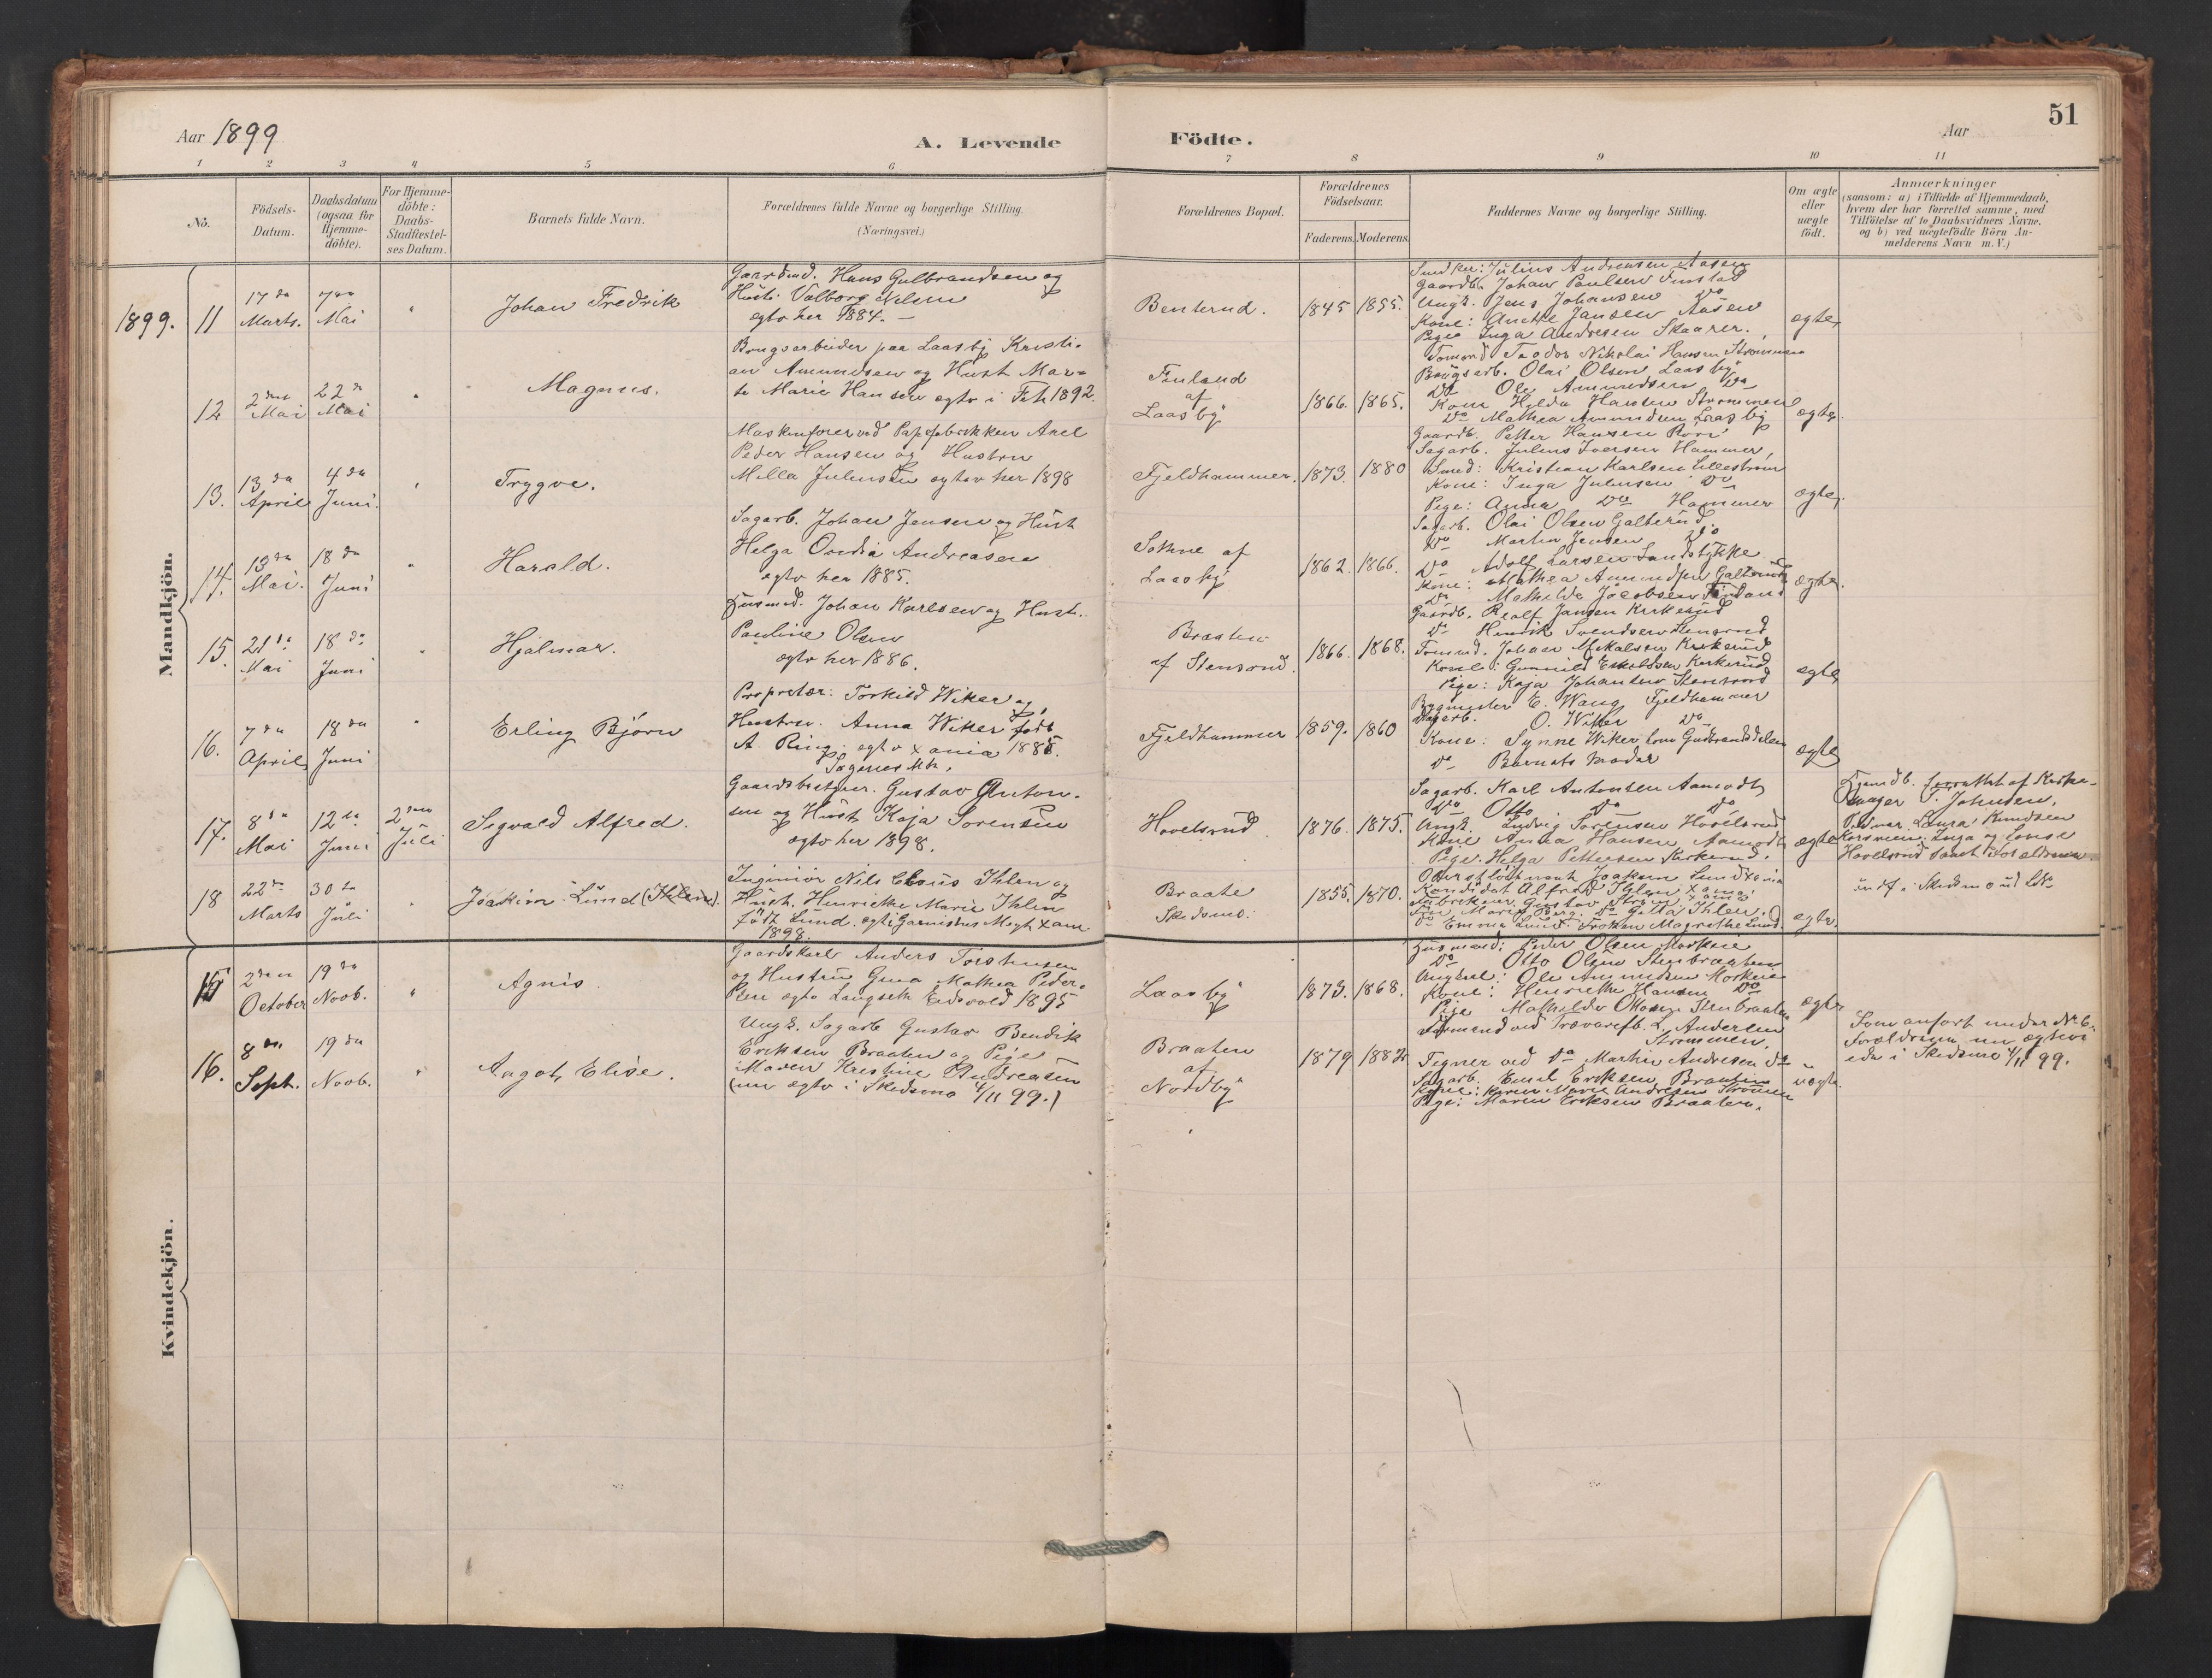 Aar 1899
A. Levende Födte.
Aar
51
1 2 3 4 5 6 7 8 9 10 11
No.
Födsels-
Datum.
Daabsdatum
(ogsaa for
Hjemme-
döbte).
For Hjemme-
döbte:
Daabs-
Stadfæstel-
ses Datum.
Barnets fulde Navn.
Forældrenes fulde Navne og borgerlige Stilling.
(Næringsvei.)
Forældrenes Bopæl.
Forældrenes
Födselsaar.
Faderens. Moderens.
Faddernes Navne og borgerlige Stilling.
Om ægte
eller
uægte
födt.
Anmærkninger
(saasom: a) i Tilfælde af Hjemmedaab,
hvem der har forrettet samme, med
Tilföielse af to Daabsvidners Navne.
og b) ved uægtefödte Börn An-
melderens Navn m. V.)
Mandkjön.
1899. 11
17de
Marts.
7de
Mai
"
Johan Fredrik
Gaardmd. Hans Gulbrandsen og
Hust: Valborg Nilsen
egtv her 1884. —
Benterud.
1845 1855.
Julius Andreassen Aasen
Gaardb. Johan Paulsen Finstad
Ungk. Jens Johansen Do
Kone: Anette Jansen Aasen
Pige Inga Andresen Skaarer.
egte
12
2den
Mai
22de
Mai
"
Magnus.
Brugsarbeider paa Laasby Kristi-
an Amundsen og Hust Mar-
te Marie Hansen egtv i Fet 1892.
Finland
af
Laasby
1866. 1865.
Tomand Teodor Nikolai Hansen Strømmen
Brugsarb. Olai Olsen Laasby
Do Ole Amundsen Do
Kone Hilda Hansen Strømmen
Do Mathea Amundsen Laasby
egte
13.
13de
April
4de
Juni.
"
Trygve.
Maskinfører ved Papirfabrikken Axel
Peder Hansen og Hustru
Milla Julensen egtev her 1898
Fjeldhammer.
1873. 1880
Gaardb. Petter Hansen
Sagarb. Julius Iversen Hammer,
Smed: Kristian Karlsen Lillestrøm
Kone: Inga Julensen Do
Pige: Anna Do Hammer
egte
14.
13de
Mai.
18de
Juni
"
Harald.
Sagarb. Johan Jensen og Hust
Helga Ovidia Andreasen
egtv her 1885.
af
Laasby
1862. 1866.
Sagarb. Olai Olsen Galterud.
Do Martin Jensen Do
Do Adolf Larsen Landstykke
Kone: Mathea Amundsen Galterud
Do Mathilde Jacobsen Finland
egte.
15.
21de
Mai
18de
Juni
"
Hjalmar.
Husmd. Johan Karlsen og Hust.
Pauline Olsen
egtv her 1886.
Braaten
af Stensrud.
1866. 1868.
Gaardb. Rolf Jansen Kirkerud
Do Henrik Svendsen Stensrud
Tomand. Johan Mikalsen Kirkerud
Kone: Gunnild Kirkerud
Pige: Kaja Johansen Stensrud
egte
16.
7de
April
18de
Juni
"
Erling Bjørn
Proprietær: Torkild Wiker og
Hustru. Anna Wiker født
A. Ring. egtv xania 1885.
Sagenes Mh.
Fjeldhammer
1859. 1860
Bygmester E. Wang Fjeldhammer
O. Wiker Do
Kone: Synne Wiker Gudbrandsdalen
Do Barnets Moder
egte
17.
8de
Mai
12te
Juni
2den
Juli
Sigvald Alfred.
Gaardsbestyrer. Gustav Anton-
sen og Hust Kaja Sorensen
egtv her 1898.
Hovelsrud
1876. 1875.
Sagarb. Karl Antonsen Aamodt
Do Otto Do Do
Ungk. Ludvig Sorensen Hovelsrud
Kone Anna Hansen Aamodt
Pige. Helga Pettersen Kirkerud.
egte
Hjemdb. forrettet af Kirke-
sanger T. Johnsen,
Laura Knudsen
Inga og Louise
Hovelsrud samt Forældrene
18
22de
Marts
30te
Juli
"
Joakim Lund (Ihlen).
Ingeniør Nils Claus Ihlen og
Hust. Henriette Marie Ihlen
født Lund. egtv Garnisons Mgh xania
1898.
Braate
Skedsmo.
1855. 1870.
Oberstløitnant Joakim Lund xania
Kandidat Alfred Ihlen xania
Fabrikeier Gustav Strøm xania
Fru Marie Berg. Do Gitta Ihlen.
Do Emma Lund. Frøken Magrethe Lund.
egte.
indf. i Skedsmo
Kvindekjön.
15
2den
October
19de
Novb.
"
Agnis
Gaardskarl Anders Torstensen
og Hustru Gina Mathea Peder-
sen egtv Langseth Eidsvold 1895
Laasby
1873. 1868.
Husmand: Peder Olsen Morken
Do Otto Olsen Stenbraaten
Ungkarl: Ole Amundsen Morken
Kone: Henriette Hansen Do
Pige Mathilde Ottosen Stenbraaten
egte
16.
8de
Sept.
19de
Novb.
"
Aagot Elise.
Ungk. Sagarb Gustav Bendik
Eriksen Braaten og Pige
Maren Kristine Andreasen
(nu egtv i Skedsmo 4/11 99.)
Braaten
af
Nordby
1879 1882
Formand ved Trævarefb. L. Andersen
Strømmen.
Tegner ved Do Martin Andresen Do
Sagarb. Emil Eriksen Braaten
Kone: Karen Marie Andresen Strømmen
Pige: Maren Eriksen Braaten.
uegte.
Som anført under No 6.
Forældrene nu egtevi-
ede i Skedsmo 4/11 99.